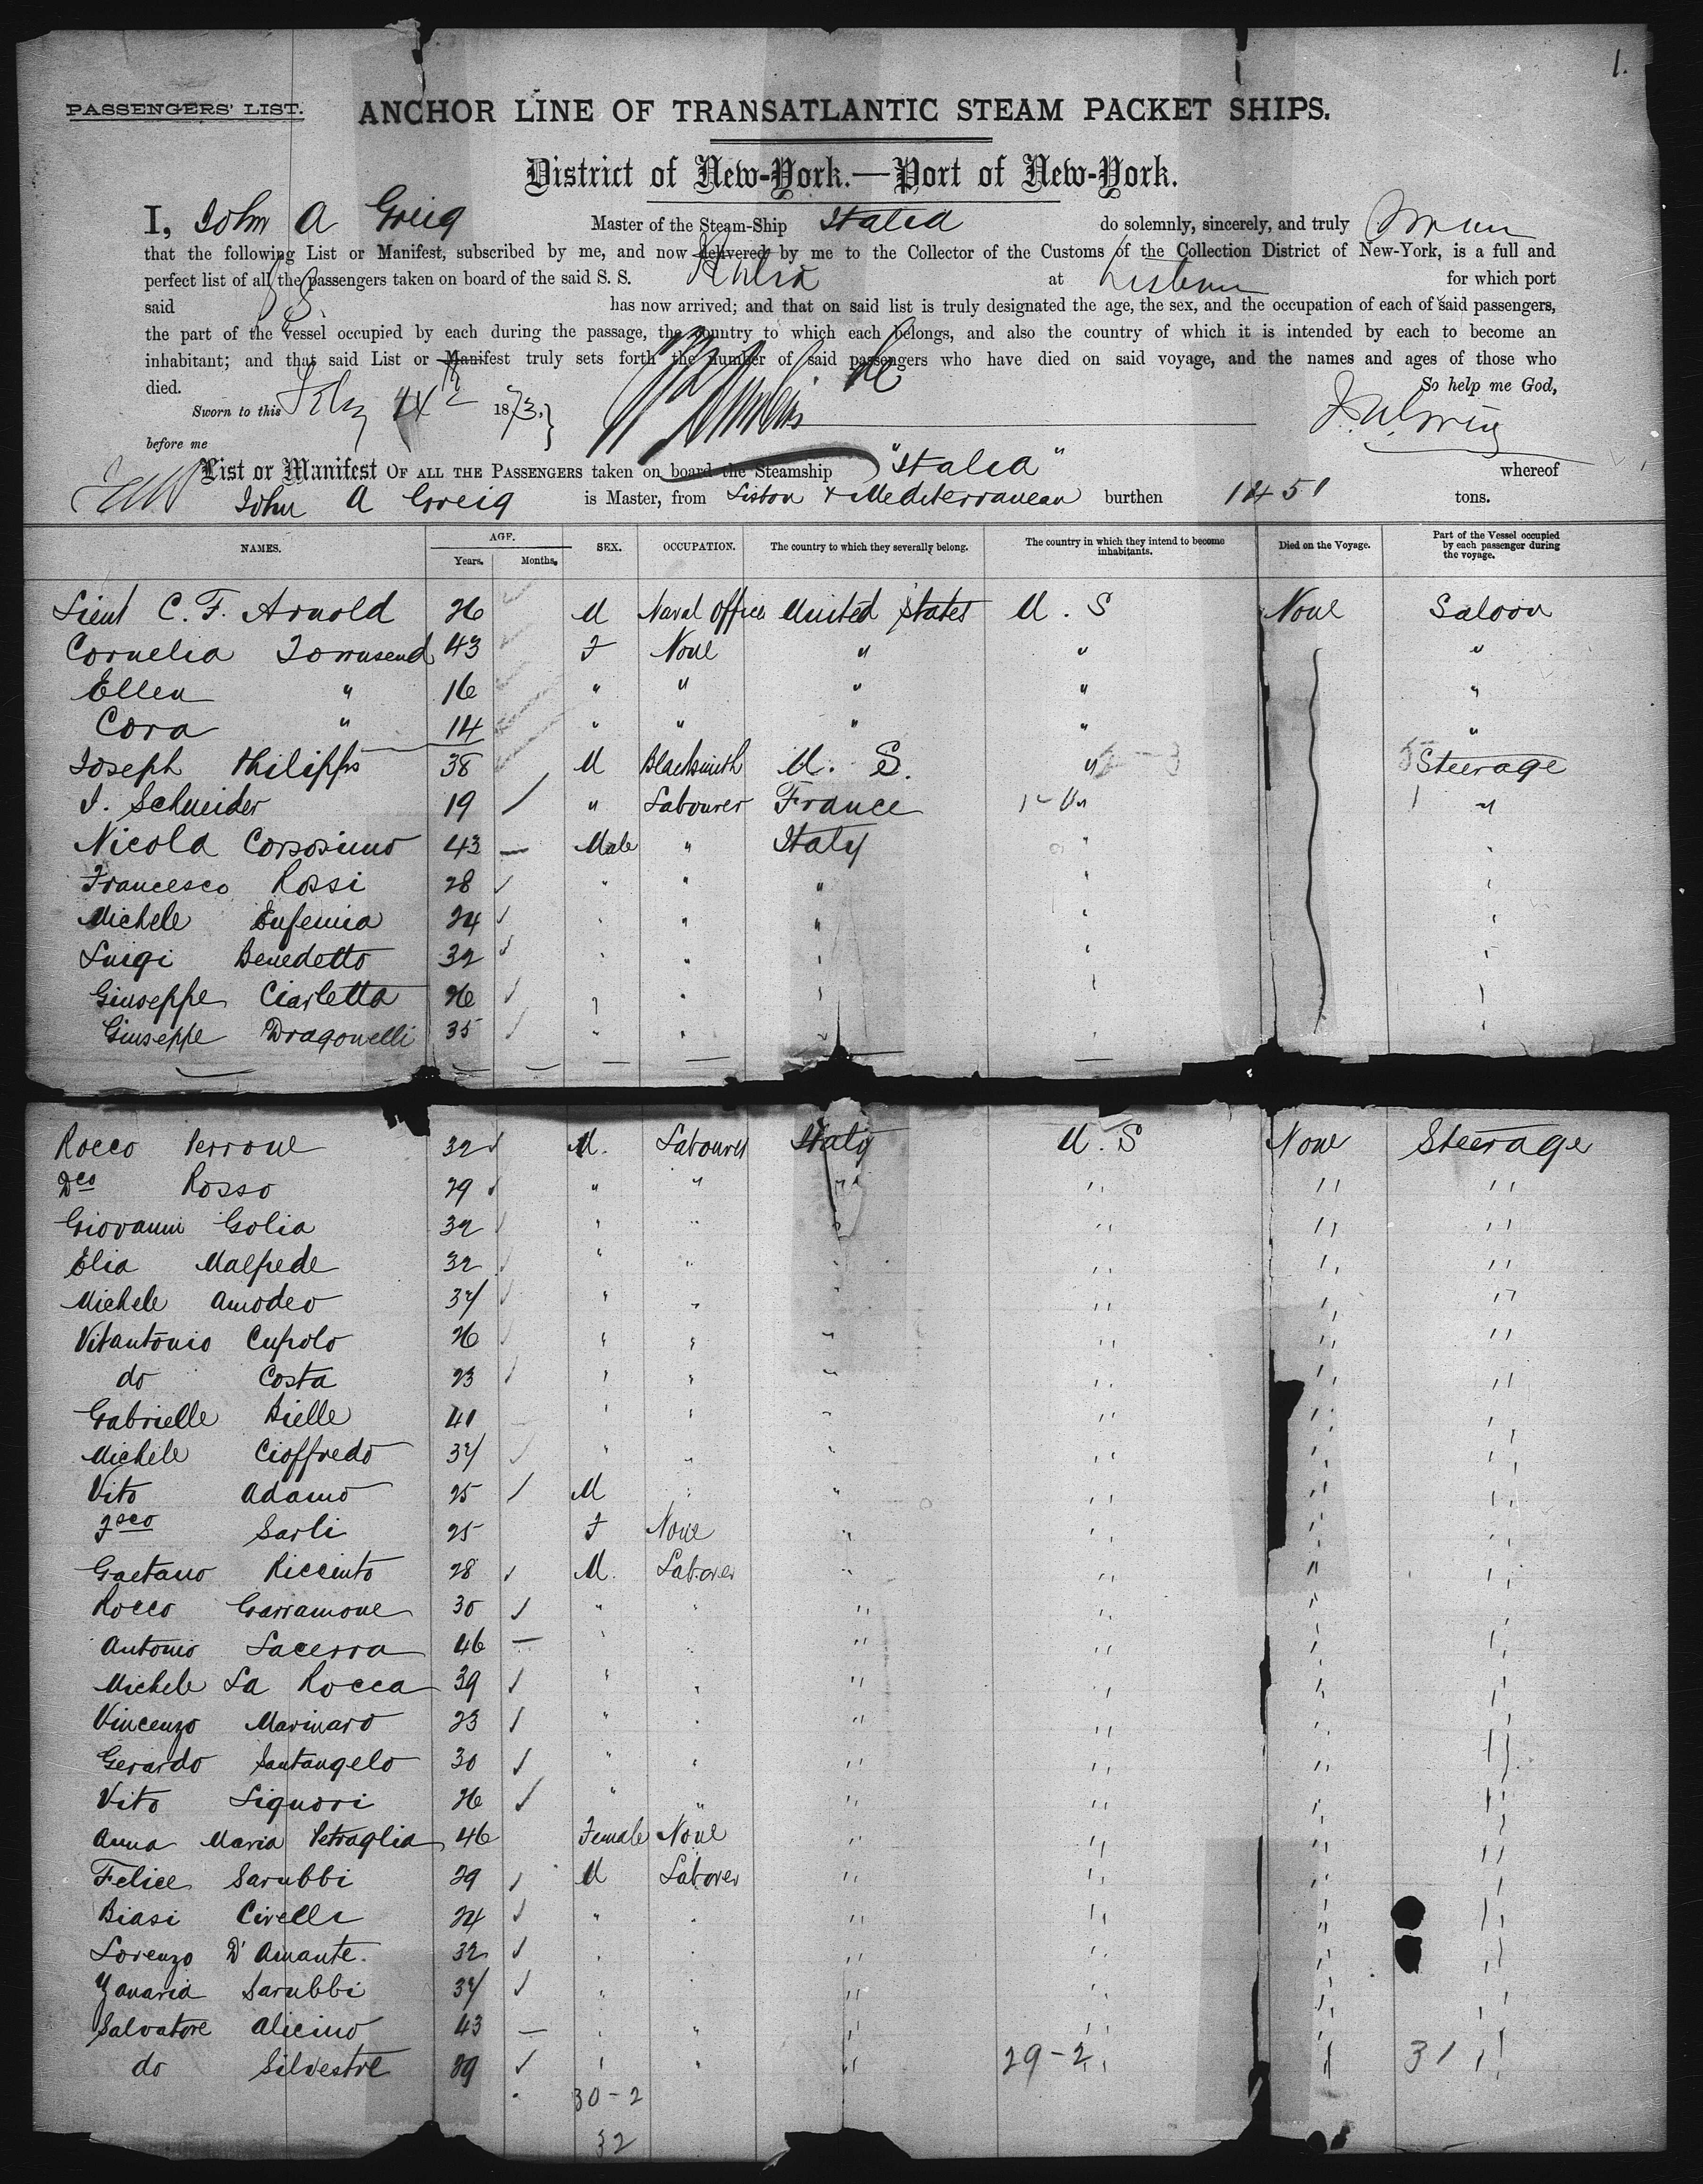 1.
PASSENGERS' LIST. ANCHOR LINE OF TRANSATLANTIC STEAM PACKET SHIPS.
District of New-York.—Port of New-York.
I, John A Greig Master of the Steam-Ship Italia do solemnly, sincerely, and truly
that the following List or Manifest, subscribed by me, and now delivered by me to the Collector of the Customs of the Collection District of New-York, is a full and
perfect list of all the passengers taken on board of the said S. S. Italia at Lisbon for which port
said has now arrived; and that on said list is truly designated the age, the sex, and the occupation of each of said passengers,
the part of the vessel occupied by each during the passage, the country to which each belongs, and also the country of which it is intended by each to become an
inhabitant; and that said List or Manifest truly sets forth the number of said passengers who have died on said voyage, and the names and ages of those who
died. So help me God,
Sworn to this 1873.
before me
List or Manifest OF ALL THE PASSENGERS taken on board the Steamship "Italia" whereof
John A Greig is Master, from Lisbon & Mediterranean burthen 1451 tons.
NAMES. AGE. Years. Months. SEX. OCCUPATION. The country to which they severally belong. The country in which they intend to become inhabitants. Died on the Voyage. Part of the Vessel occupied by each passenger during the voyage.
Lieut C. F. Arnold 26 M Naval Officer United States U. S None Saloon
Cornelia Townsend 43 F None " " "
Ellen " 16 " " " " "
Cora " 14 " " " " "
Joseph Philipps 38 M Blacksmith U. S. " Steerage
J. Schneider 19 " Labourer France " "
Nicola Corsosimo 43 — Male " Italy " "
Francesco Rossi 28 " " " " "
Michele Eufemia 24 " " " " "
Luigi Benedetto 32 " " " " "
Giuseppe Ciarletta 26 " " " " "
Giuseppe Dragonelli 35 " " " " "
Rocco Perrone 32 M. Labourer Italy U. S None Steerage
Dco Rosso 29 " " " " " "
Giovanni Golia 32 " " " " " "
Elia Malpede 32 " " " " " "
Michele Amodeo 34 " " " " " "
Vitantonio Cupolo 26 " " " " " "
do Costa 23 " " " " " "
Gabrielle Bielle 40 " " " " " "
Michele Cioffredo 34 " " " " " "
Vito Adamo 25 M " " " " "
Fsco Sarli 25 F None " " " "
Gaetano Riccinto 28 M. Laborer " " " "
Rocco Garramone 30 " " " " " "
Antonio Lacerra 46 — " " " " " "
Michele La Rocca 39 " " " " " "
Vincenzo Marinaro 23 " " " " " "
Gerardo Santangelo 30 " " " " " "
Vito Liquori 26 " " " " " "
Anna Maria Petraglia 46 Female None " " " "
Felice Sarubbi 29 M Laborer " " " "
Biasi Civelli 24 " " " " " "
Lorenzo D'Amante. 32 " " " " " "
Zanaria Sarubbi 34 " " " " " "
Salvatore Alicino 43 — " " " " " "
do Silvestre 29 " " " 29-2 " " 31 "
30-2
32